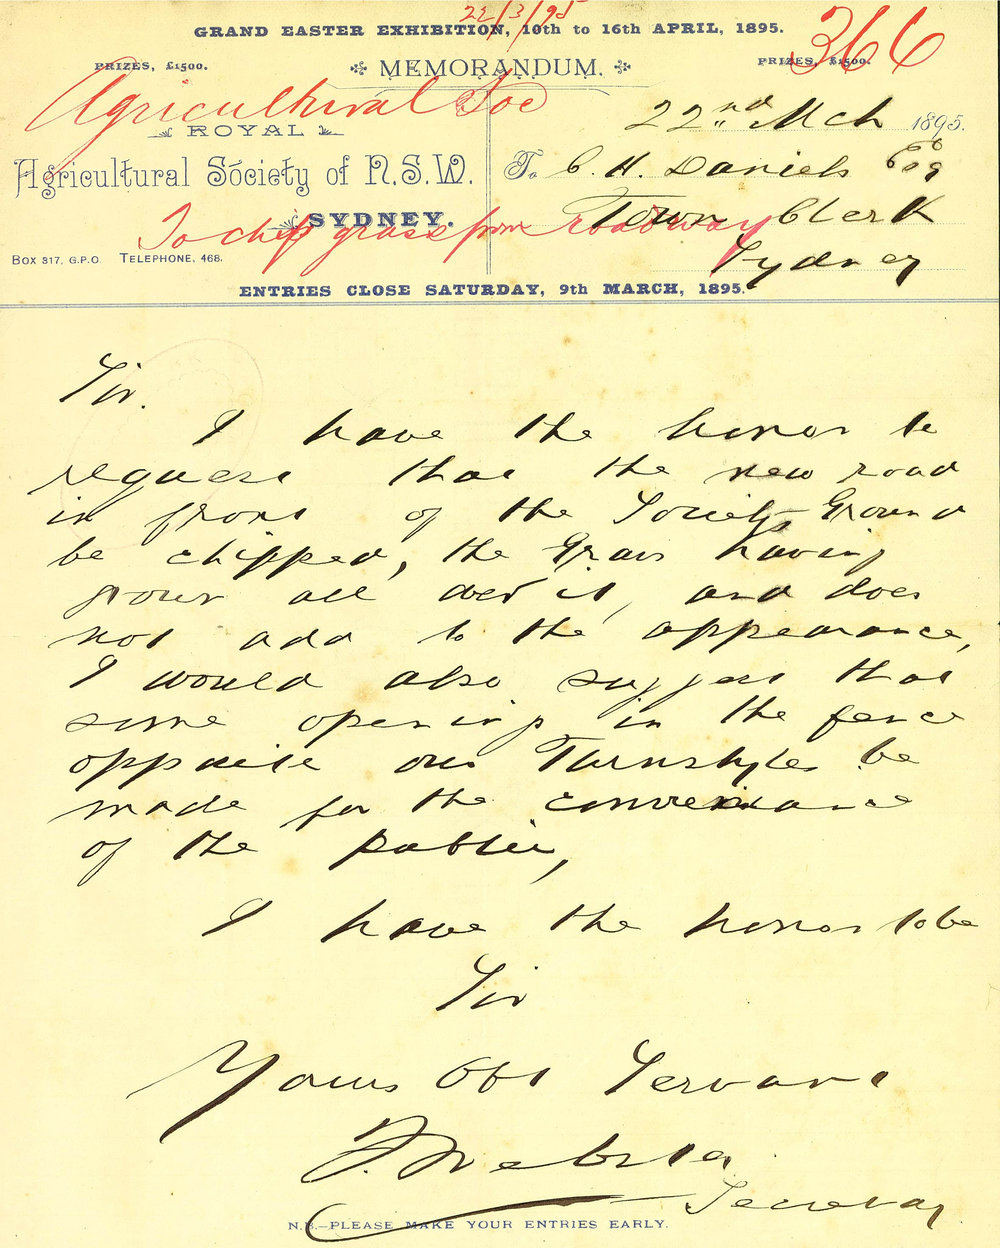 22/3/95
GRAND EASTER EXHIBITION, 10th to 16th APRIL, 1895.
366
PRIZES, £1500.
MEMORANDUM.
PRIZES, £1500.
Agricultural Soc
ROYAL
Agricultural Society of N.S.W.
SYDNEY.
To chip grass from roadway
BOX 317, G.P.O. TELEPHONE, 468.
22nd Mch 1895.
To C. H. Daniels Esq
Town Clerk
Sydney
ENTRIES CLOSE SATURDAY, 9th MARCH, 1895.
Sir.
I have the honor to
request that the new road
in front of the Society Ground
be chipped, the Grass having
grown all over it, and does
not add to the appearance,
I would also suggest that
some opening in the fence
opposite our Turnstyles be
made for the convenience
of the public,
I have the honor to be
Sir
Yours Obt Servant
F. Webster
Secretary
N.B.—PLEASE MAKE YOUR ENTRIES EARLY.